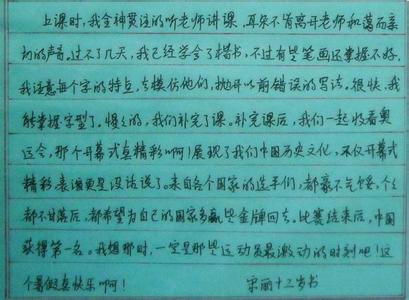 上课时，我全神贯注的听老师讲课，耳朵不肯离开老师和蔼而亲
切的声音。过不了几天，我已经学会了楷书，不过有些笔画还掌握不好，
我注意每个字的特点，去模仿他们，抛开以前错误的写法。很快，我
能掌握字型了。慢慢的，我们补完了课。补完课后，我们一起收看奥
运会，那个开幕式真精彩啊！展现了我们中国历史文化，不仅开幕式
精彩表演更是没话说了。来自各个国家的选手们，都毫不气馁，个个
都不甘落后，都希望为自己的国家多赢些金牌回去。比赛结束后，中国
获得第一名。我想那时，一定是那些运动员最激动的时刻吧！这
个暑假真快乐啊！ 宋丽十三岁书